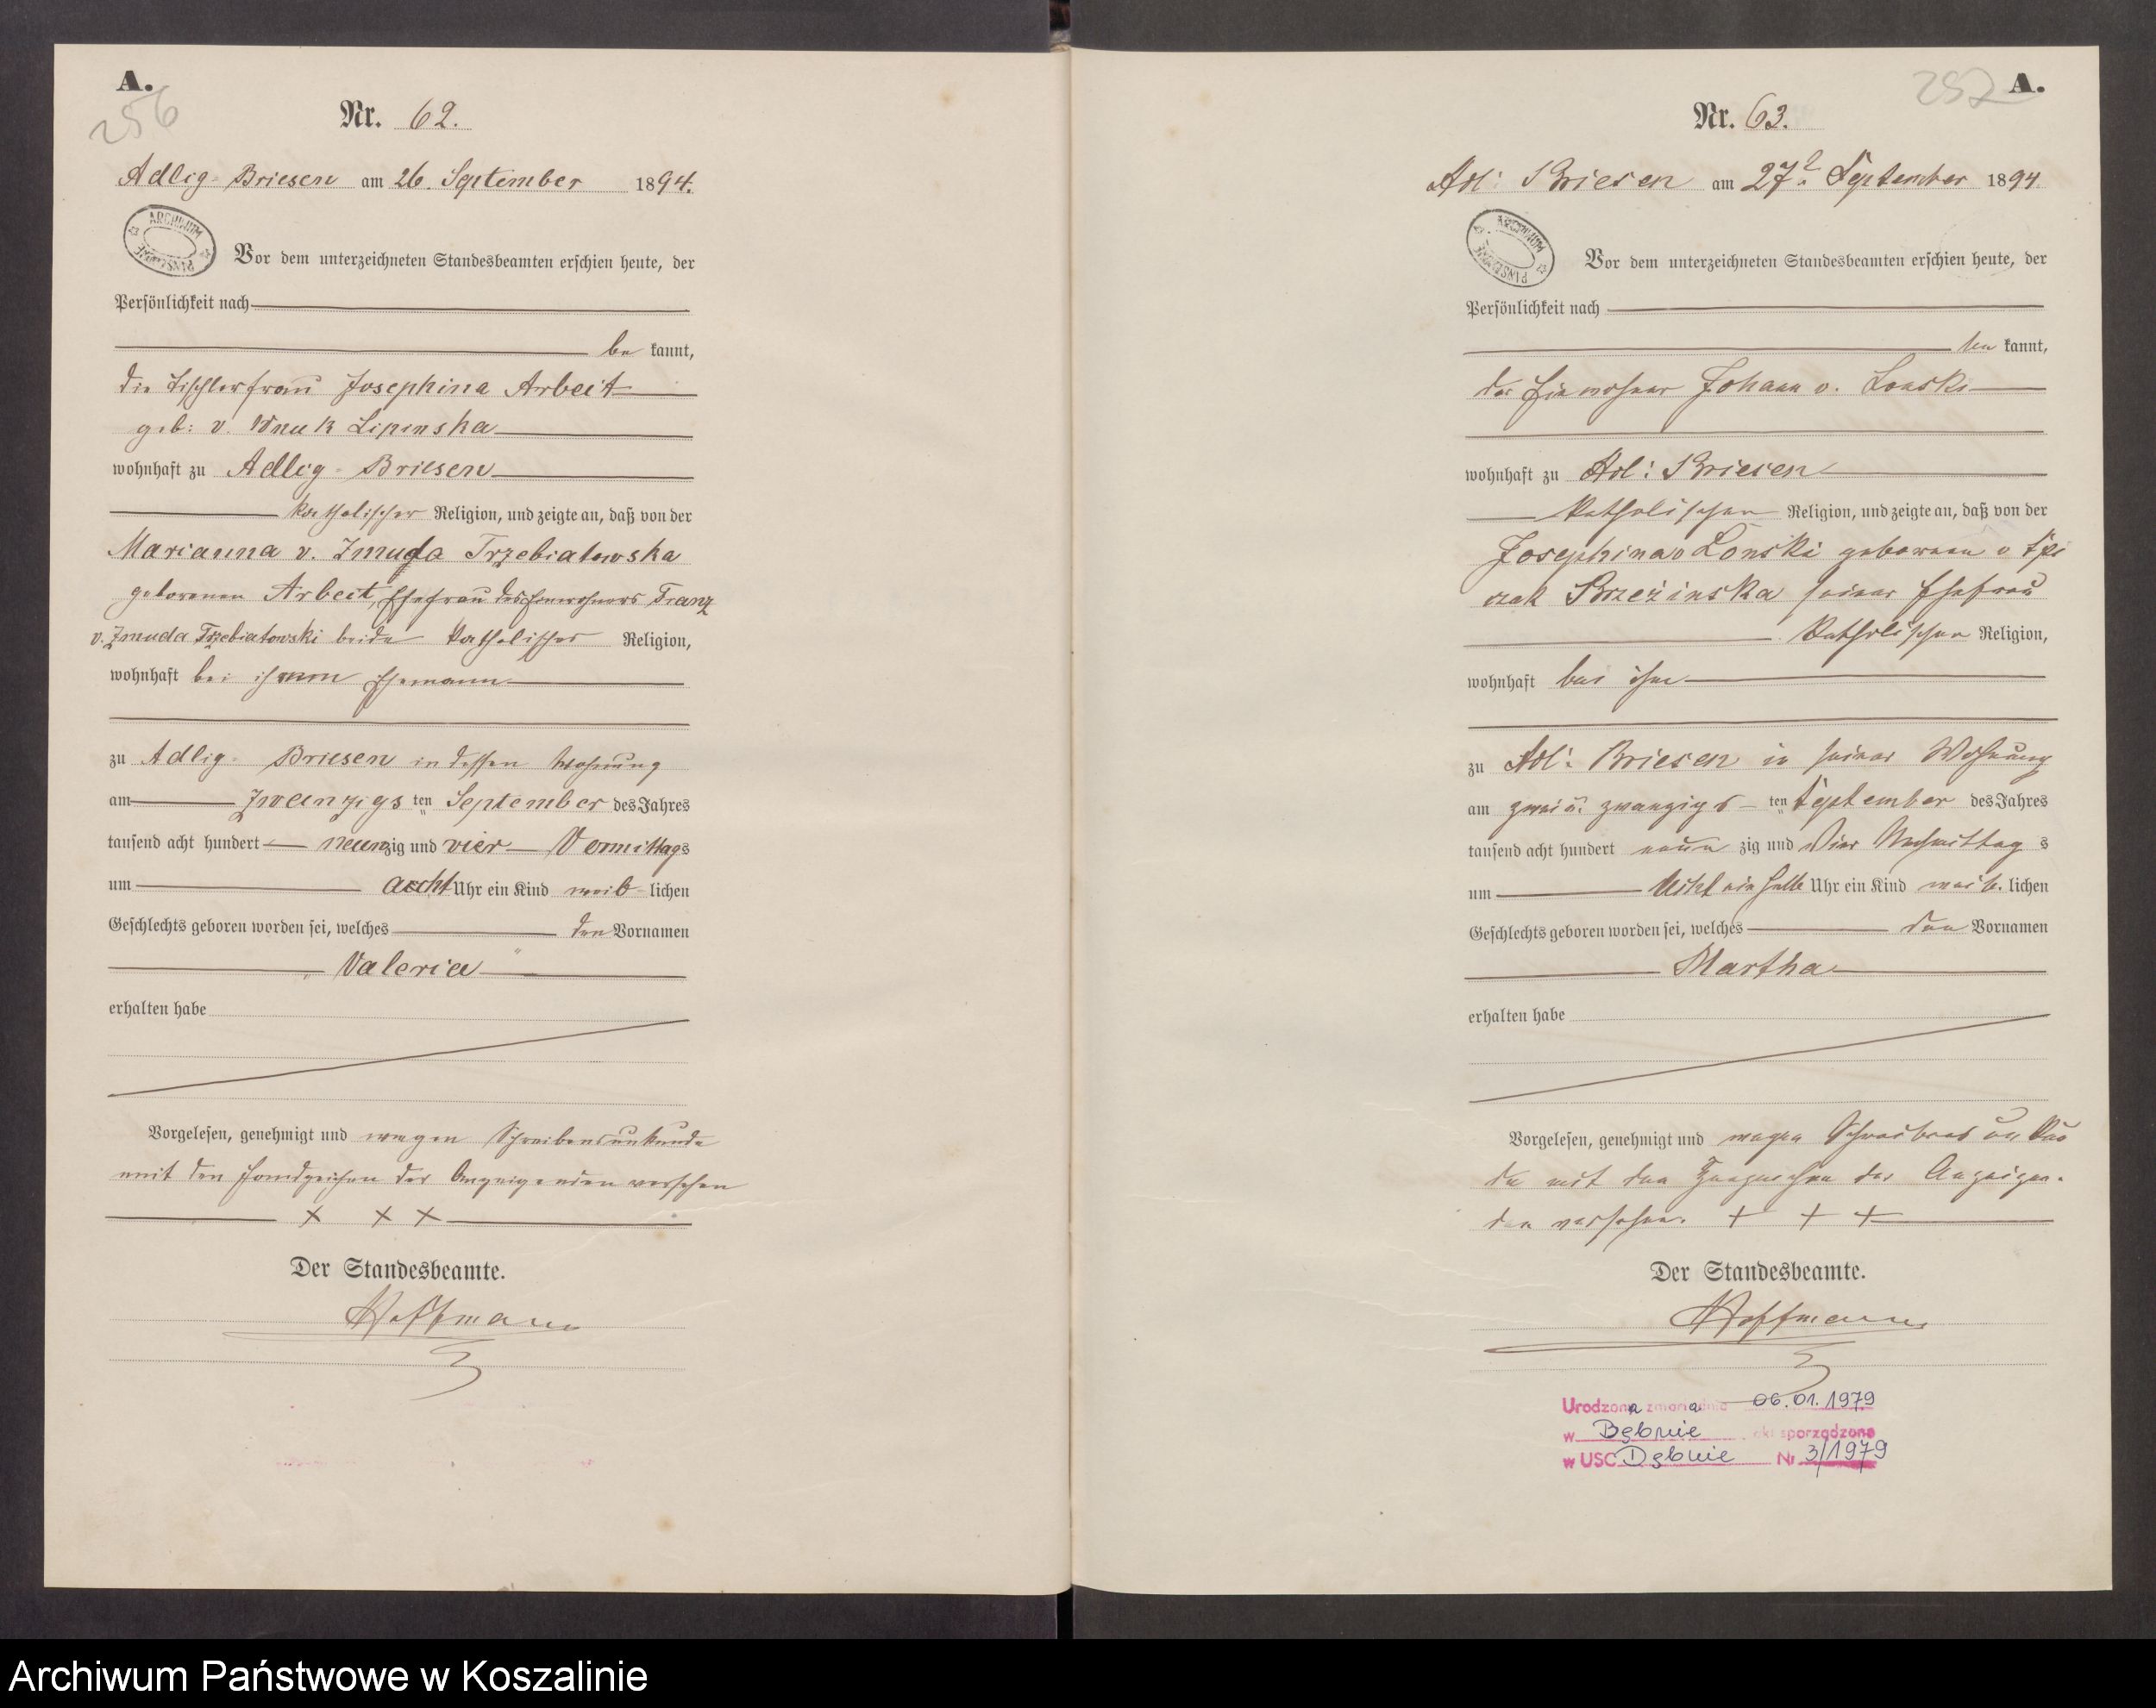 A.
256
Nr. 62.
Adlig-Briesen am 26. September 1894.
ARCHIWUM PAŃSTWOWE
Vor dem unterzeichneten Standesbeamten erschien heute, der
Persönlichkeit nach
be kannt,
die Tischlerfrau Josephina Arbeit
geb: v. Wnuk Lipinska
wohnhaft zu Adlig-Briesen
katholischer Religion, und zeigte an, daß von der
Marianna v. Zmuda Trzebiatowska
geborenen Arbeit, Ehefrau des Einwohners Franz
v. Zmuda Trzebiatowski beide katholischer Religion,
wohnhaft bei ihrem Ehemann
zu Adlig-Briesen in dessen Wohnung
am zwanzigs ten September des Jahres
tausend acht hundert neunzig und vier Vormittags
um acht Uhr ein Kind weib-lichen
Geschlechts geboren worden sei, welches den Vornamen
„Valeria"
erhalten habe
Vorgelesen, genehmigt und wegen Schreibensunkunde
mit den Handzeichen der Anzeigenden versehen
X X X
Der Standesbeamte.
Hoffmann
A.
257
Nr. 63.
Adl: Briesen am 27. September 1894.
ARCHIWUM PAŃSTWOWE
Vor dem unterzeichneten Standesbeamten erschien heute, der
Persönlichkeit nach
be kannt,
der Einwohner Johann v. Lonski
wohnhaft zu Adl: Briesen
katholischer Religion, und zeigte an, daß von der
Josephina v Lonski geborenen v
Brzezinska seiner Ehefrau
katholischer Religion,
wohnhaft bei ihm
zu Adl: Briesen in seiner Wohnung
am zwei u. zwanzigs ten September des Jahres
tausend acht hundert neun zig und vier Nachmittag s
um Acht ein halb Uhr ein Kind weib. lichen
Geschlechts geboren worden sei, welches den Vornamen
Martha
erhalten habe
Vorgelesen, genehmigt und wegen Schreibens unkun
de mit den der Anzeigen-
den versehen. + + +
Der Standesbeamte.
Hoffmann
Urodzona zmarła dnia 06.01.1979
w Dębnie akt sporządzono
w USC Dębnie Nr 3/1979
Archiwum Państwowe w Koszalinie